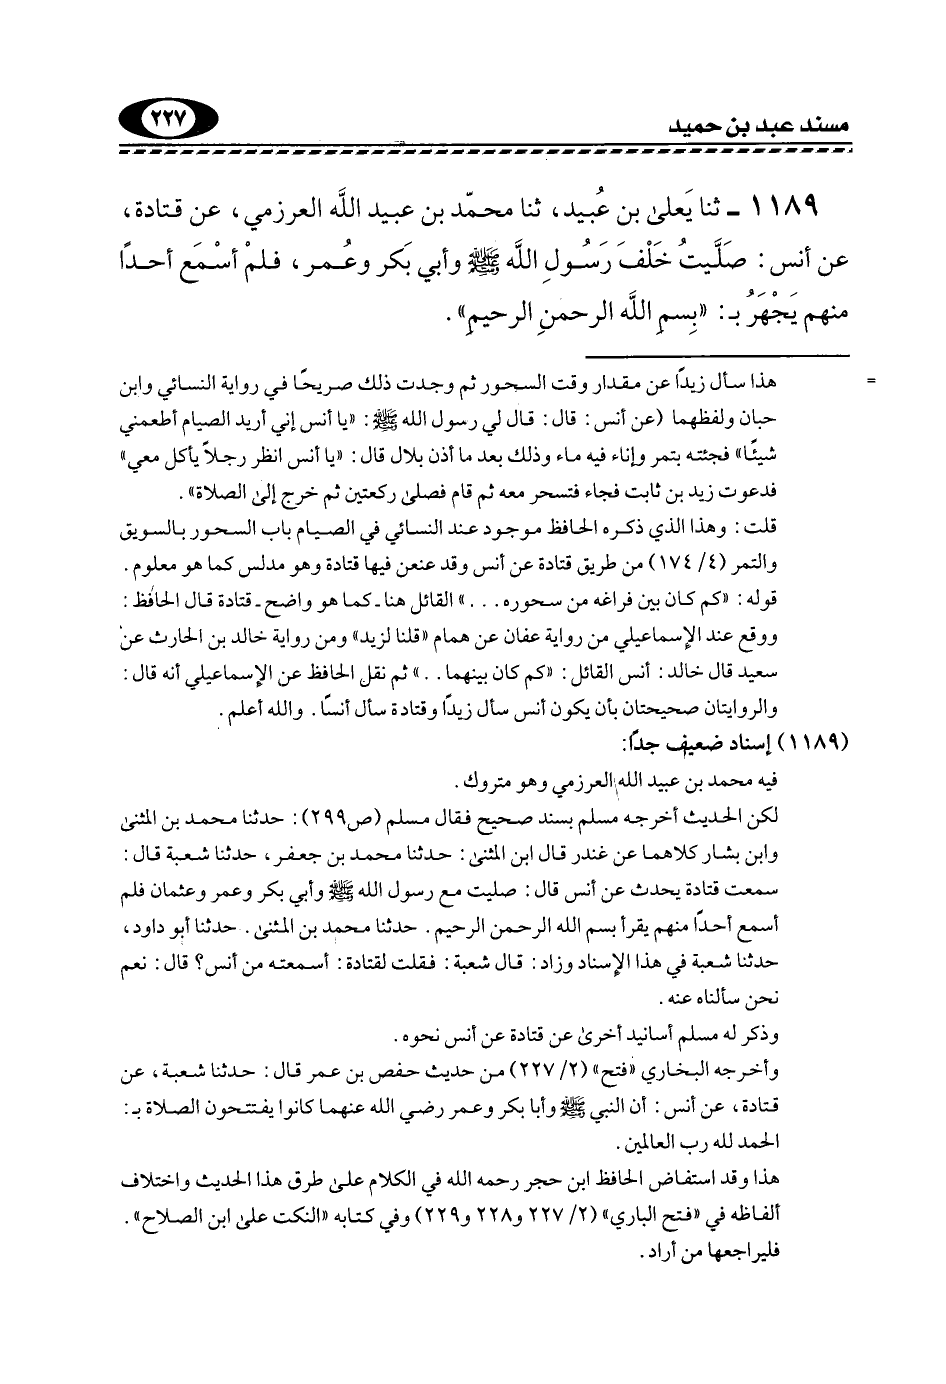 مسند عبد بن حميد ٢٢٧
١١٨٩ ـ ثنا يَعلىٰ بن عُبيد، ثنا محمّد بن عبيد اللَّه العرزمي، عن قتادة،
عن أنس: صَلَّيتُ خَلْفَ رَسُولِ اللَّه ﷺ وأبي بَكر وعُمر، فلمْ أسْمَع أحدًا
منهم يَجْهَرُ بـ: «بِسمِ اللَّه الرحمنِ الرحيمِ».
= هذا سأل زيدًا عن مقدار وقت السحور ثم وجدت ذلك صريحًا في رواية النسائي وابن
حبان ولفظهما (عن أنس: قال: قال لي رسول الله ﷺ: «يا أنس إني أريد الصيام أطعمني
شيئًا» فجئته بتمر وإناء فيه ماء وذلك بعد ما أذن بلال قال: «يا أنس انظر رجلاً يأكل معي»
فدعوت زيد بن ثابت فجاء فتسحر معه ثم قام فصلىٰ ركعتين ثم خرج إلىٰ الصلاة».
قلت: وهذا الذي ذكره الحافظ موجود عند النسائي في الصيام باب السحور بالسويق
والتمر (٤/ ١٧٤) من طريق قتادة عن أنس وقد عنعن فيها قتادة وهو مدلس كما هو معلوم.
قوله: «كم كان بين فراغه من سحوره...» القائل هنا ـ كما هو واضح ـ قتادة قال الحافظ:
ووقع عند الإسماعيلي من رواية عفان عن همام «قلنا لزيد» ومن رواية خالد بن الحارث عن
سعيد قال خالد: أنس القائل: «كم كان بينهما..» ثم نقل الحافظ عن الإسماعيلي أنه قال:
والروايتان صحيحتان بأن يكون أنس سأل زيدًا وقتادة سأل أنسًا. والله أعلم.
(١١٨٩) إسناد ضعيف جدًا:
فيه محمد بن عبيد الله العرزمي وهو متروك.
لكن الحديث أخرجه مسلم بسند صحيح فقال مسلم (ص٢٩٩): حدثنا محمد بن المثنىٰ
وابن بشار كلاهما عن غندر قال ابن المثنىٰ: حدثنا محمد بن جعفر، حدثنا شعبة قال:
سمعت قتادة يحدث عن أنس قال: صليت مع رسول الله ﷺ وأبي بكر وعمر وعثمان فلم
أسمع أحدًا منهم يقرأ بسم الله الرحمن الرحيم. حدثنا محمد بن المثنىٰ. حدثنا أبو داود،
حدثنا شعبة في هذا الإسناد وزاد: قال شعبة: فقلت لقتادة: أسمعته من أنس؟ قال: نعم
نحن سألناه عنه.
وذكر له مسلم أسانيد أخرىٰ عن قتادة عن أنس نحوه.
وأخرجه البخاري «فتح» (٢/ ٢٢٧) من حديث حفص بن عمر قال: حدثنا شعبة، عن
قتادة، عن أنس: أن النبي ﷺ وأبا بكر وعمر رضي الله عنهما كانوا يفتتحون الصلاة بـ:
الحمد لله رب العالمين.
هذا وقد استفاض الحافظ ابن حجر رحمه الله في الكلام علىٰ طرق هذا الحديث واختلاف
ألفاظه في «فتح الباري» (٢/ ٢٢٧ و٢٢٨ و٢٢٩) وفي كتابه «النكت علىٰ ابن الصلاح».
فليراجعها من أراد.